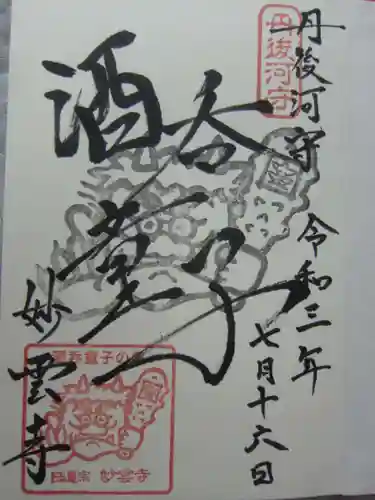 丹後河守
丹後河守
令和三年
七月十六日
酒呑
童子
妙雲寺
酒呑童子の寺
日蓮宗 妙雲寺